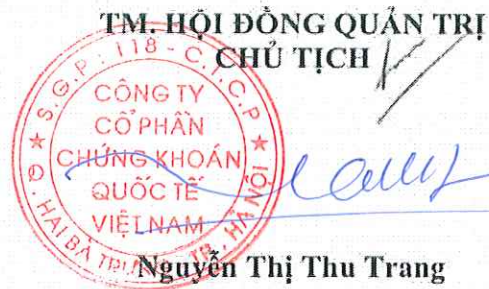 TM. HỘI ĐỒNG QUẢN TRỊ
CHỦ TỊCH
S.G.P: 118 - C.T.C.P
CÔNG TY
CỔ PHẦN
CHỨNG KHOÁN
QUỐC TẾ
VIỆT NAM
Q. HAI BÀ TRƯNG TP. HÀ NỘI
Nguyễn Thị Thu Trang